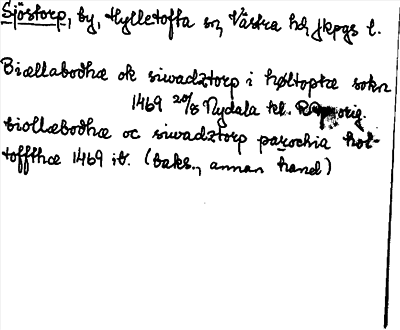 Sjöstorp, by, Hylletofta sn, Västra hd, Jkpgs l.
Biællabodhæ ok siwadztorp i høltoptæ sokn
1469 20/8 Nydala kl. orig.
biollæbodhæ oc siwadztorp parochia høl-
toffthæ 1469 ib. (baks., annan hand)